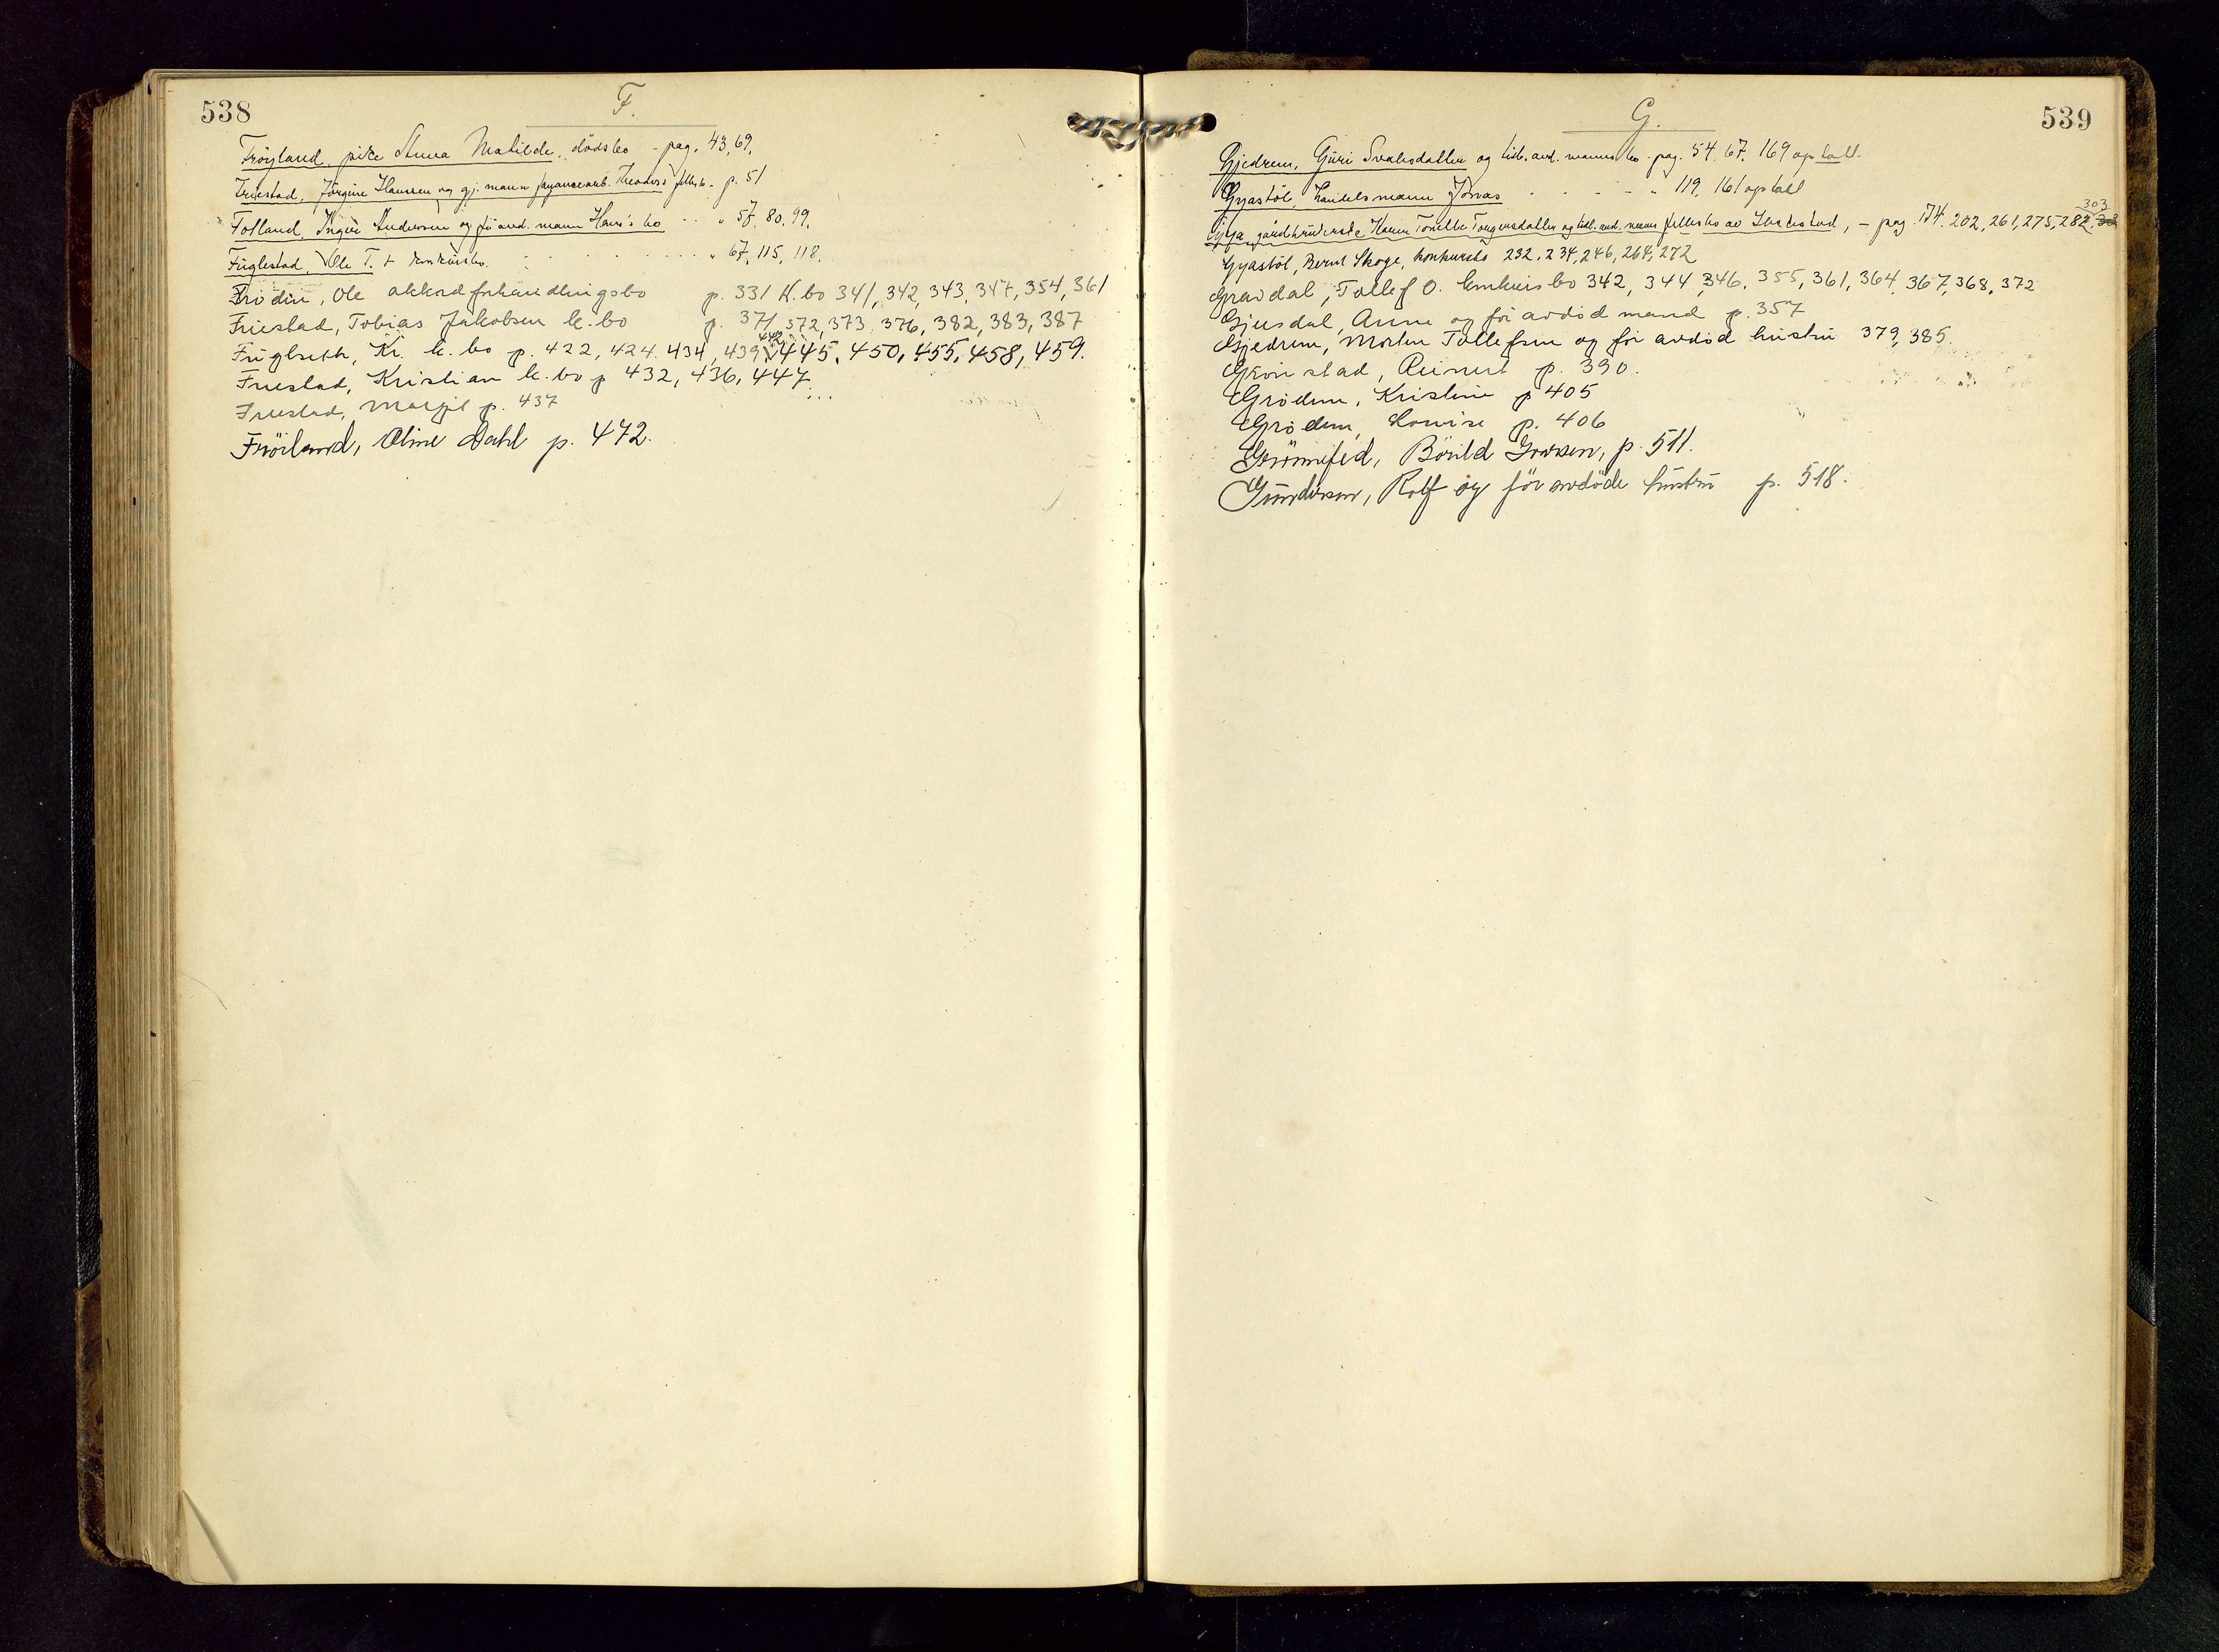 538
F.
Fröyland, pike Anna Matilde, dödsbo - pag. 43, 69.
Friestad, Jörgine Hansen og gj. mann Theodors fellesb. - p. 51
Fotland, Inger Andersen og før avd. mann Hans's bo - - " 57, 80, 99.
Fuglestad, Ole T. konkursbo. " 67, 115, 118.
Frödin, Ole akkordforhandlingsbo p. 331 K.bo 341, 342, 343, 347, 354, 361
Friestad, Tobias Jakobsen k.bo p. 371, 372, 373, 376, 382, 383, 387
Fuglseth, Kr. k.bo p. 422, 424, 434, 439, 445, 450, 455, 458, 459.
Friestad, Kristian k.bo p 432, 436, 447.
Friestad, Margit p. 437
Fröiland, Oline Dahl p. 472.
539
G.
Gjedrem, Guri Svalesdatter og tidl. avd. manns bo - pag. 54, 67, 169 optall.
Gyastöl, handelsmann Jonas - - - - " 119, 161 optall
303
Gya, gårdbrukerske Torgersdatter og tidl. avd. manns fellesbo av - pag. 174, 202, 261, 275, 282,
Gyastöl, Bernt Skoge, konkursbo 232, 234, 246, 264, 272
Gravdal, Tollef O. konkursbo 342, 344, 346, 355, 361, 364, 367, 368, 372
Gjesdal, Anne og før avdöd mand p. 357
Gjedrem, Morten Tollefsen og før avdöd hustru 379, 385.
Grönstad, Reinert p. 390.
Grödem, Kristine p 405
Grödem, Lovise p. 406
Bårild p. 511.
Gundersen, Rolf og før avdöde hustru p. 518.